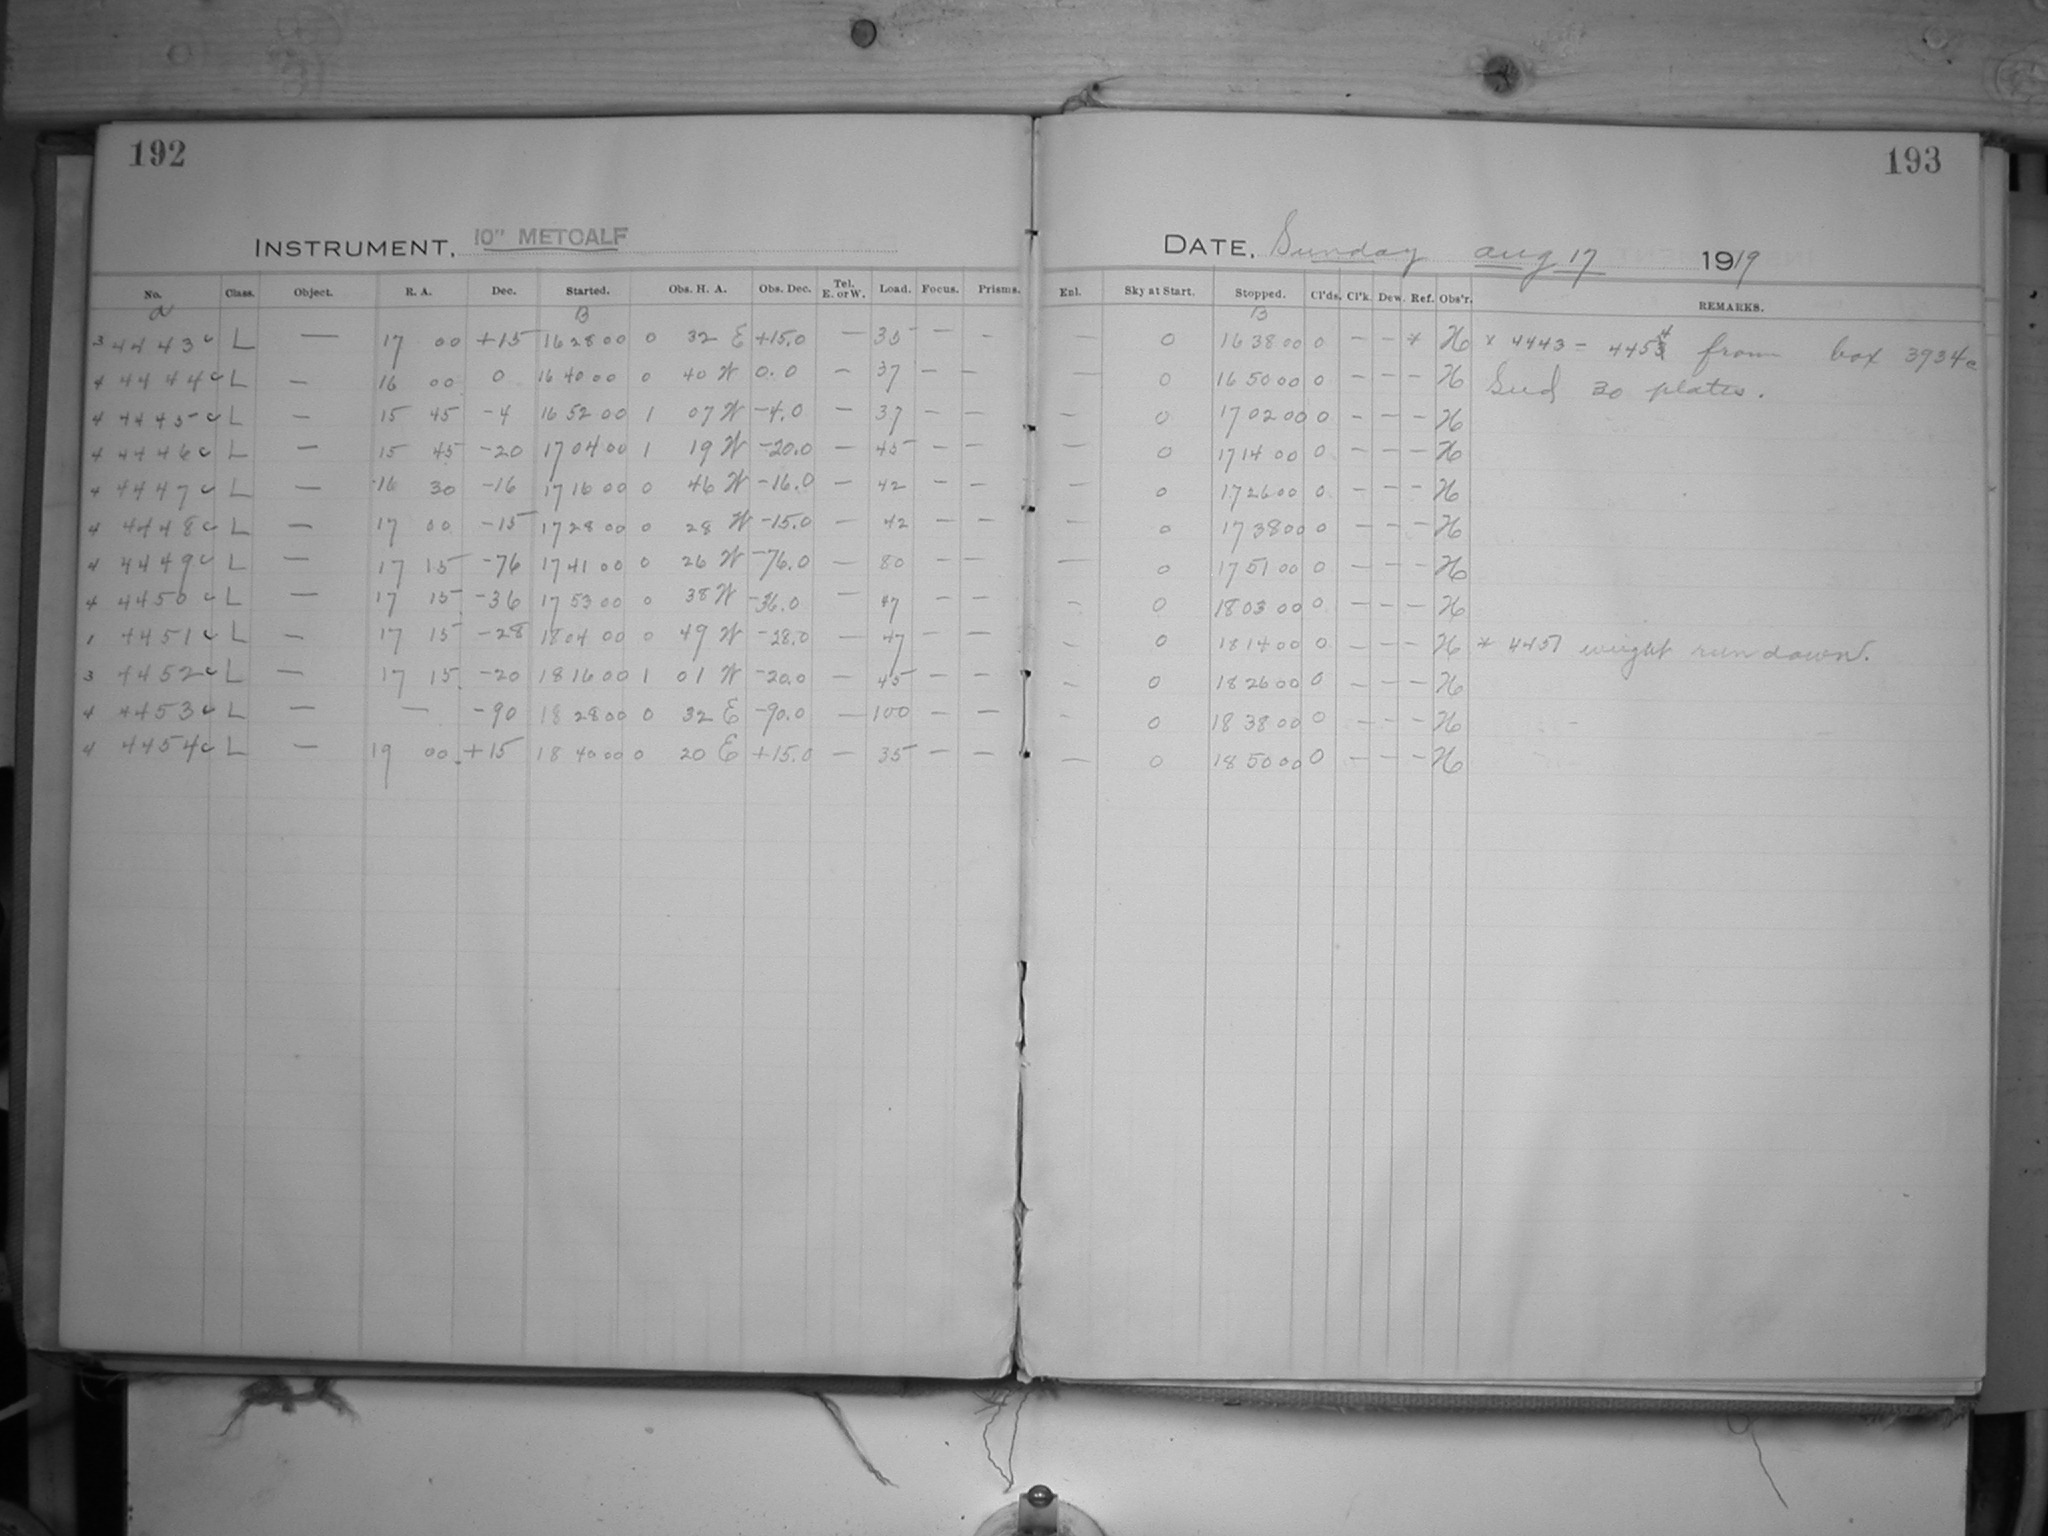 192
INSTRUMENT, 10" METCALF
No. Class. Object. R. A. Dec. Started. Obs. H. A. Obs. Dec. Tel. E. or W. Load. Focus. Prisms.
a B
3 4443c L — 17 00 +15 16 28 00 0 32 E +15.0 — 35 — –
4 4444c L — 16 00 0 16 40 00 0 40 W 0.0 — 37 — —
4 4445c L — 15 45 -4 16 52 00 1 07 W -4.0 — 37 — —
4 4446c L — 15 45 -20 17 04 00 1 19 W -20.0 — 45 — —
4 4447c L — 16 30 -16 17 16 00 0 46 W -16.0 — 42 — —
4 4448c L — 17 00 -15 17 28 00 0 28 W -15.0 — 42 — —
4 4449c L — 17 15 -76 17 41 00 0 26 W -76.0 — 80 — —
4 4450c L — 17 15 -36 17 53 00 0 38 W -36.0 — 47 — —
1 4451c L — 17 15 -28 18 04 00 0 49 W -28.0 — 47 — —
3 4452c L — 17 15 -20 18 16 00 1 01 W -20.0 — 45 — —
4 4453c L — — -90 18 28 00 0 32 E -90.0 — 100 — —
4 4454c L — 19 00 +15 18 40 00 0 20 E +15.0 — 35 — —
193
DATE, Sunday Aug 17 1919
Enl. Sky at Start. Stopped. Cl'ds. Cl'k. Dew. Ref. Obs'r. REMARKS.
B
— 0 16 38 00 0 — — * H x 4443 - 4454 from box 3934c
— 0 16 50 00 0 — — — H Seed 30 plates.
— 0 17 02 00 0 — — — H
— 0 17 14 00 0 — — — H
— 0 17 26 00 0 — — — H
— 0 17 38 00 0 — — — H
— 0 17 51 00 0 — — — H
— 0 18 03 00 0 — — — H
— 0 18 14 00 0 — — — H * 4451 weight run down.
— 0 18 26 00 0 — — — H
— 0 18 38 00 0 — — — H
— 0 18 50 00 0 — — — H